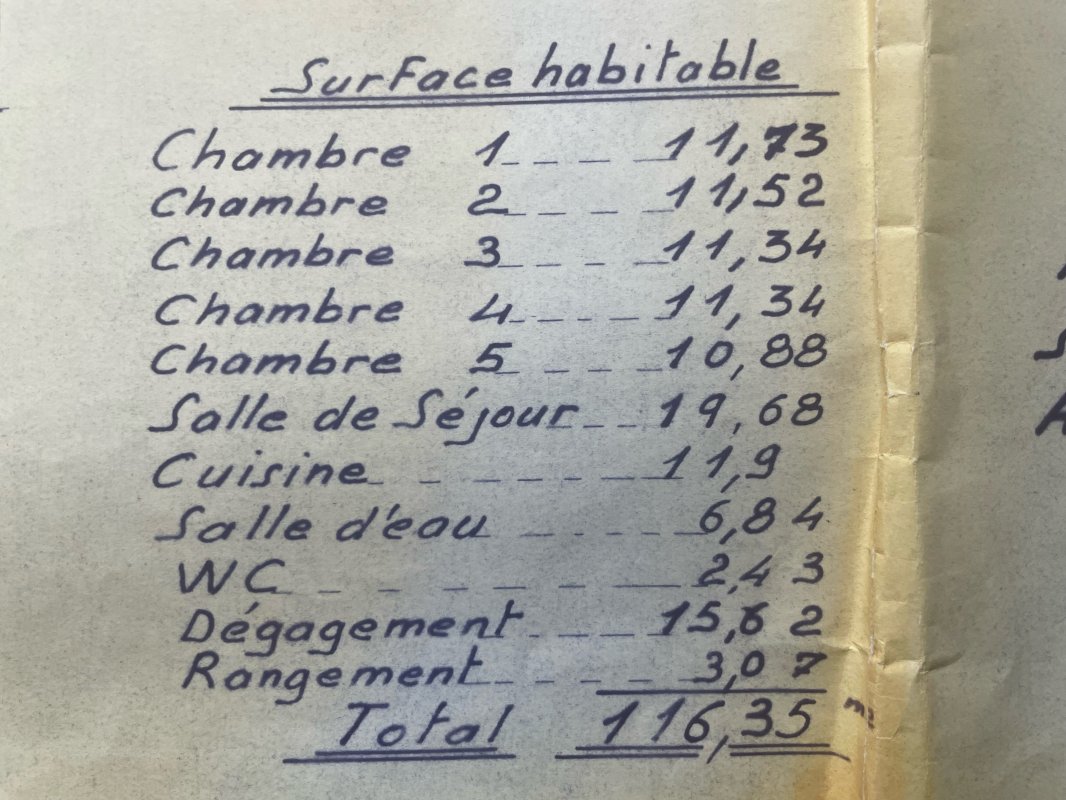 Surface habitable
Chambre 1 11,73
Chambre 2 11,52
Chambre 3 11,34
Chambre 4 11,34
Chambre 5 10,88
Salle de Séjour 19,68
Cuisine 11,9
Salle d'eau 6,84
WC 2,43
Dégagement 15,62
Rangement 3,07
Total 116,35 m2